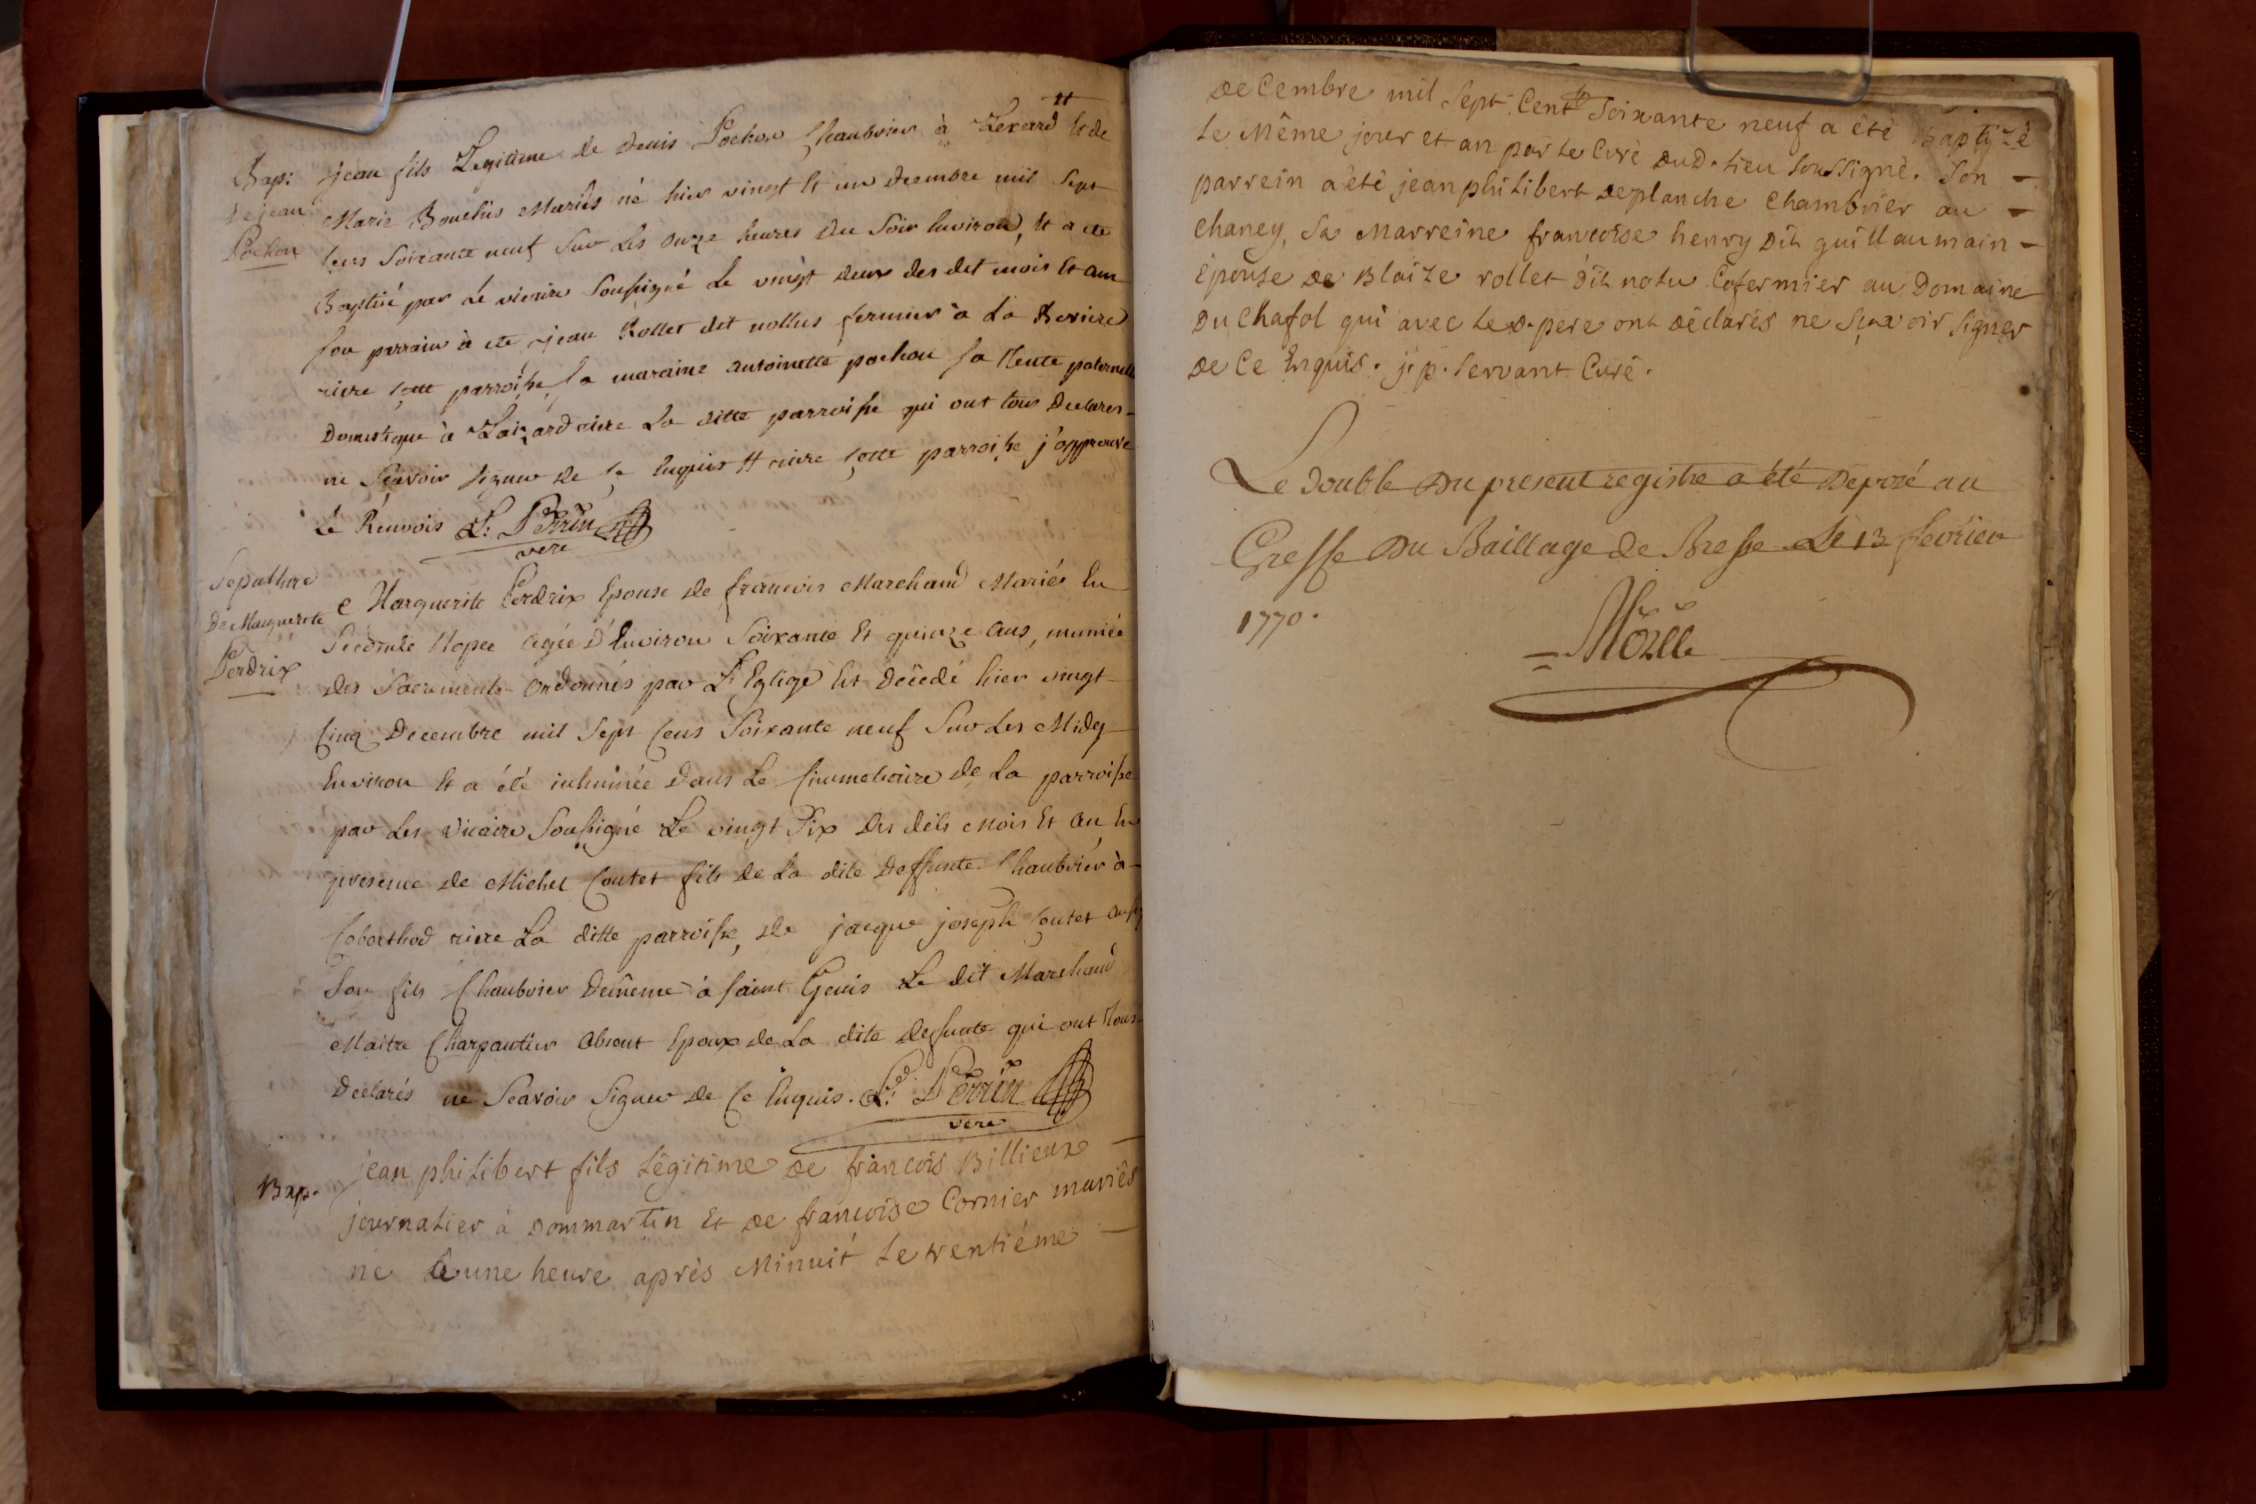 Bap:
de jean
Pochon
jean fils Legitime de denis Pochon Chanbrier à Lexard # et de
Marie Bouchis Mariés né hier vingt et un decembre mil Sept
Cens Soixante neuf Sur Les onze heures Du Soir Environ, et a été
Baptisé par Le vicaire Soussigné Le vingt deux des dit mois Et an
son parrain à été jean Rollet dit nollus fermier à La
riere cette parroisse, sa maraine antoinette pochon sa tente paternelle
Domestique à riere La ditte parroisse qui ont tous Declarés
ne Scavoir signer de ce Enquis # riere cette parroisse j'approuve
Le Renvois L: Perrin
vere
Sepulture
De Marguerite
Perdrix
Marguerite Perdrix Epouse de francois Marchand Mariés En
Seconde Nopce agée d'Environ Soixante Et quinze ans, muniée
des Sacrements ordonnés par L'Eglige Est Decedé hier vingt
Cinq Decembre mil Sept Cens Soixante neuf Sur Les Midy
Environ Et a été inhumée dans Le Cimmetoire de La parroisse
par Les Vicaire Soussigné Le vingt Six des dits Mois Et an En
presence de Michel Coutet fils de La dite Deffunte Chanbrier à
Coberthod riere La ditte parroisse, de jacque joseph Coutet aussy
Son fils Chanbrier Demême à saint Genis Le dit Marchand
Maitre Charpantier Absent Epoux de La dite defunte qui ont Tous
Declarés ne Scavoir Signer de Ce Enquis. L: Perrin
vere
Bap.
jean philibert fils Légitime de francois Billieux
journalier à Dommartin Et de francoise Cornier mariés
né à une heure après Minuit le trentiéme
decembre mil Sept Cent Soixante neuf a été Baptizé
le Même jour et an par le Curé dud. lieu Soussigné. Son
parrein a été jean philibert deplanche Chambrier au
Chaney, Sa Marreine francoise henry Dit guillaumain
épouse de Blaize rollet dit nolu Cofermier au Domaine
du Chafol qui avec le d. pere ont déclarés ne Sçavoir Signer
de Ce Enquis. j. p. Servant Curé.
Le double du present registre a été Deposé au
Greffe Du Baillage de Bresse Le 13 fevrier
1770.